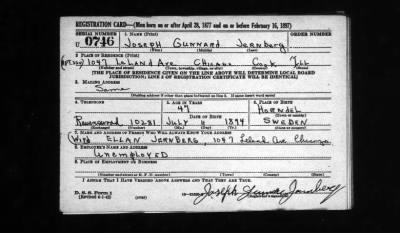 REGISTRATION CARD—(Men born on or after April 28, 1877 and on or before February 16, 1897)
SERIAL NUMBER 1. NAME (Print) ORDER NUMBER
U 0746 JOSEPH GUNNARD JERNBERG
(First) (Middle) (Last)
2. PLACE OF RESIDENCE (Print)
1047 LELAND AVE CHICAGO COOK ILL
(Number and street) (Town, township, village, or city) (County) (State)
[THE PLACE OF RESIDENCE GIVEN ON THE LINE ABOVE WILL DETERMINE LOCAL BOARD
JURISDICTION; LINE 2 OF REGISTRATION CERTIFICATE WILL BE IDENTICAL]
3. MAILING ADDRESS
Same
[Mailing address if other than place indicated on line 2. If same insert word same]
4. TELEPHONE 5. AGE IN YEARS 6. PLACE OF BIRTH
47
DATE OF BIRTH
Ravenswood 10281 JULY 1894 SWEDEN
(Exchange) (Number) (Mo.) (Day) (Yr.) (State or country)
7. NAME AND ADDRESS OF PERSON WHO WILL ALWAYS KNOW YOUR ADDRESS
(WIFE) ELLAN JERNBERG, 1047 Leland Ave Chicago
8. EMPLOYER'S NAME AND ADDRESS
UNEMPLOYED
9. PLACE OF EMPLOYMENT OR BUSINESS
(Number and street or R. F. D. number) (Town) (County) (State)
I AFFIRM THAT I HAVE VERIFIED ABOVE ANSWERS AND THAT THEY ARE TRUE.
D. S. S. Form 1
(Revised 4-1-42) (over)
Joseph Gunnar Jernberg